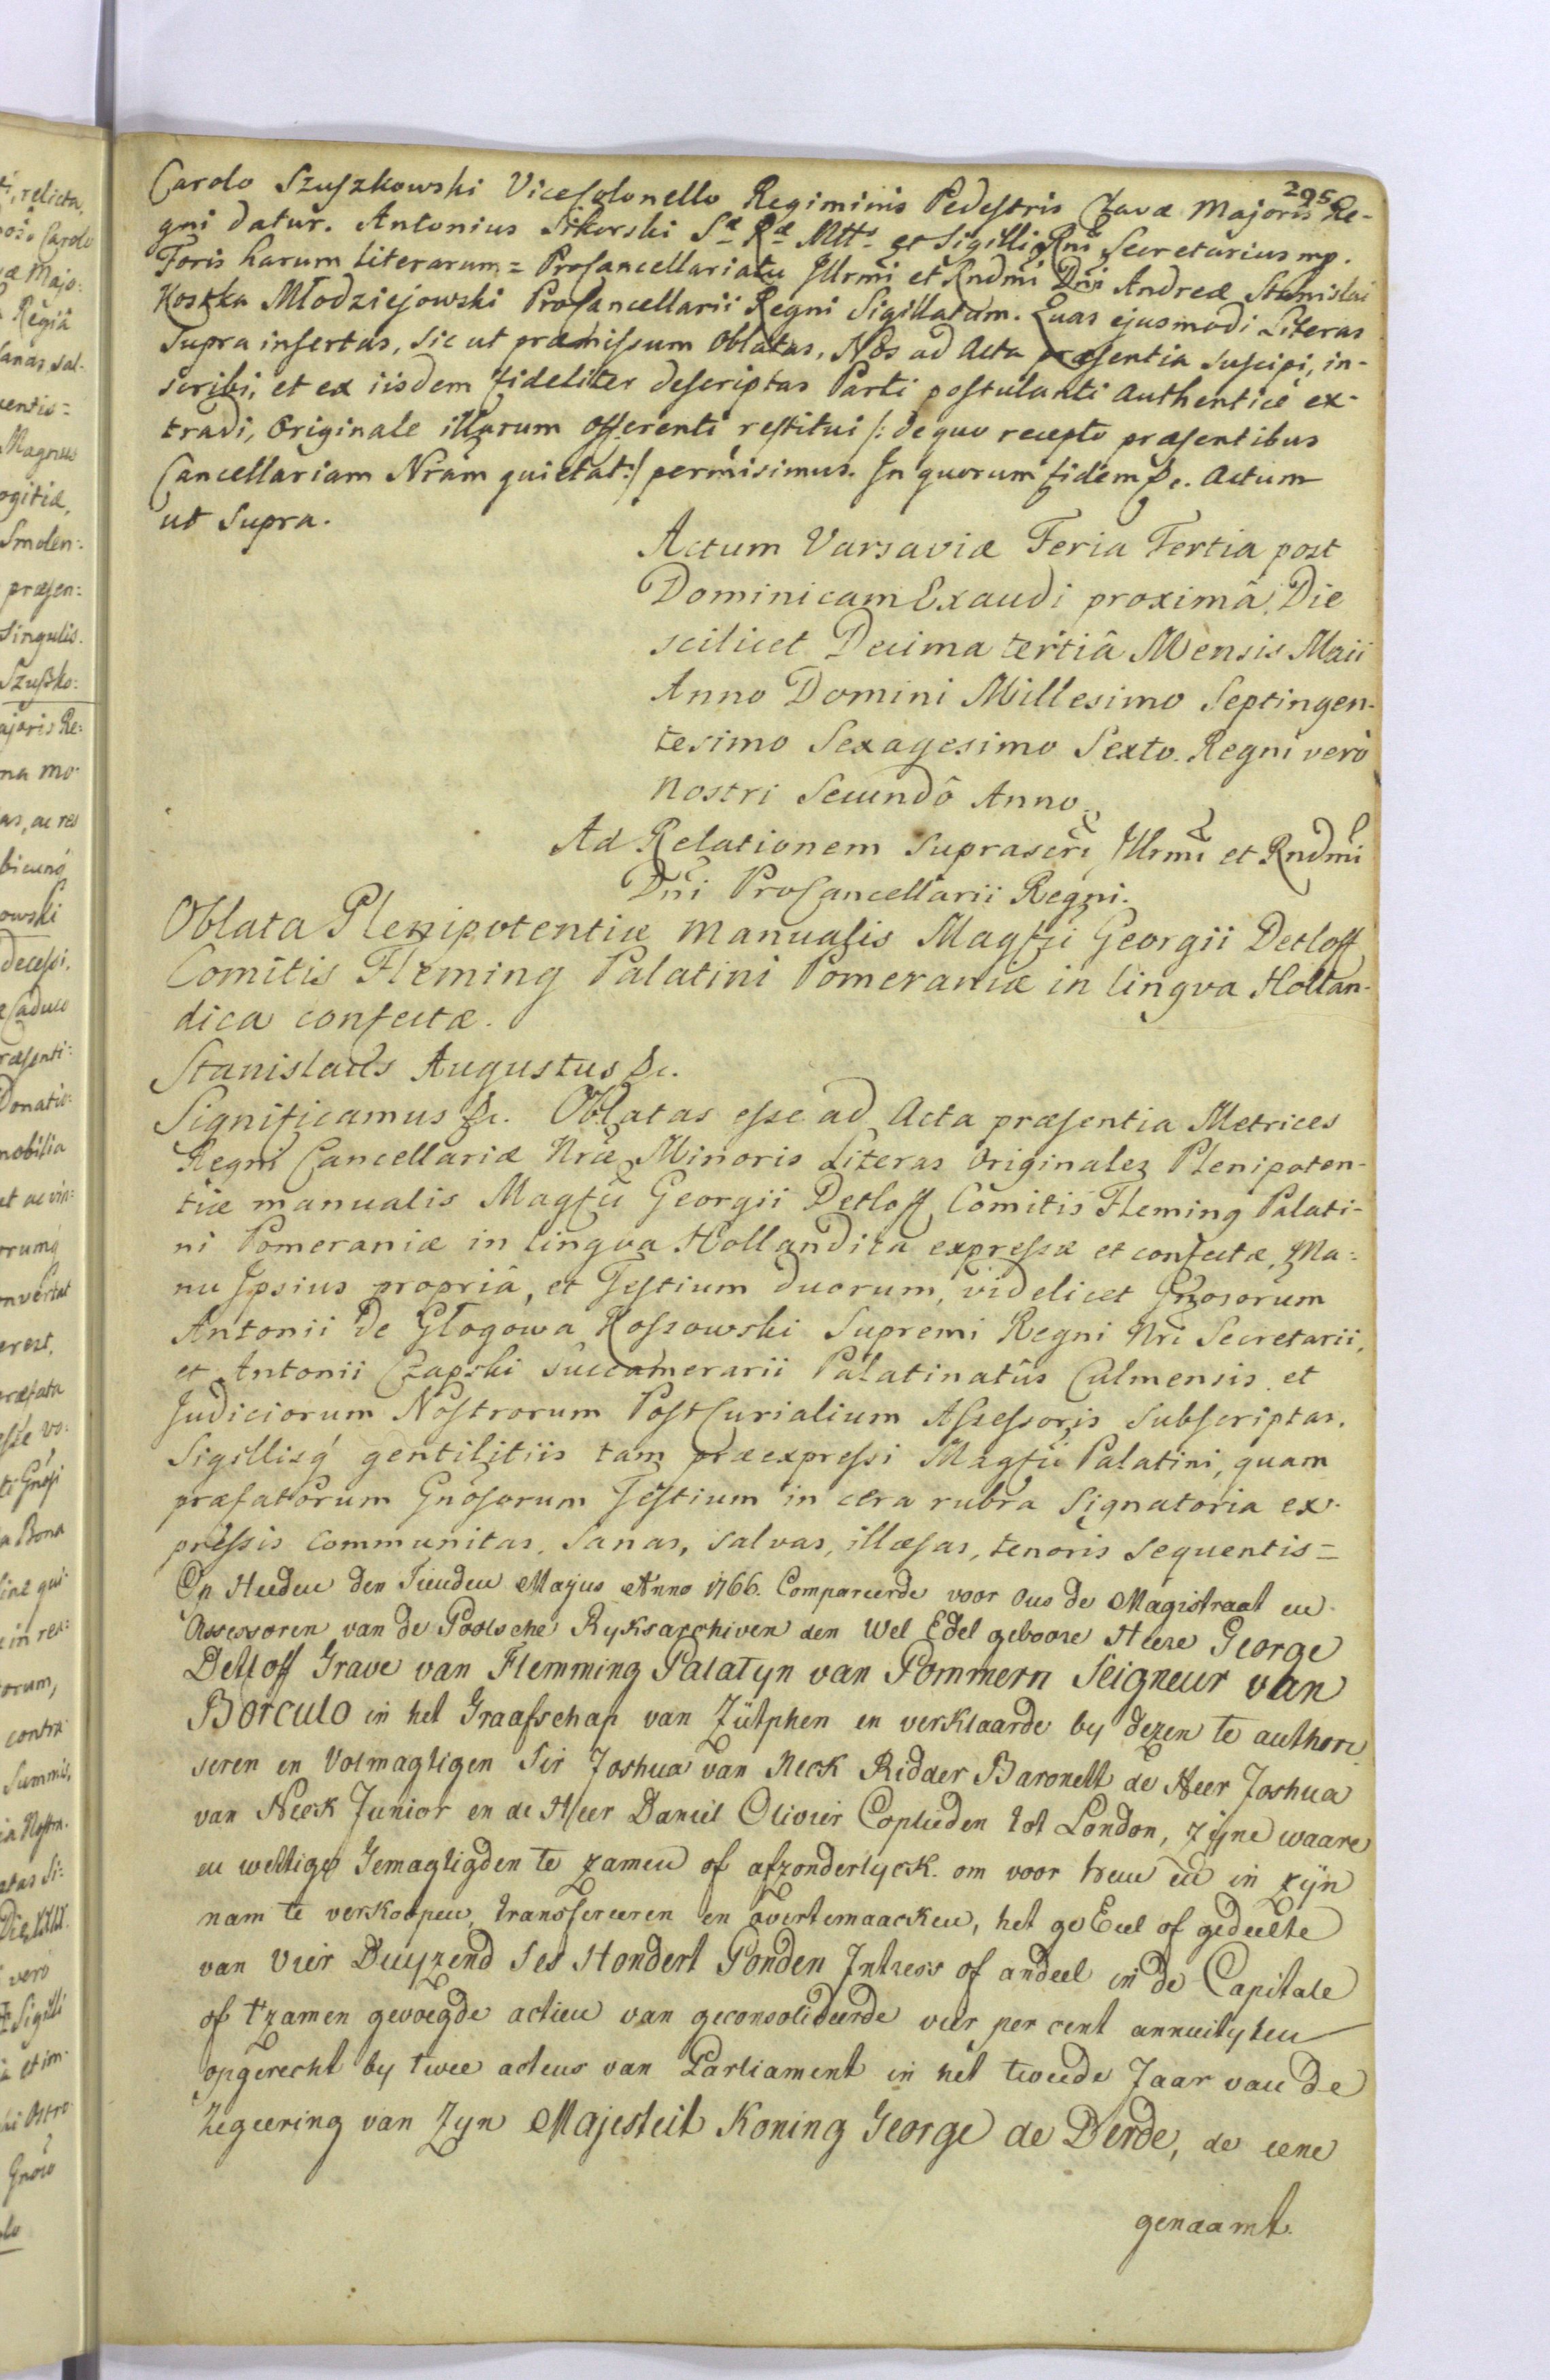 295
Carolo Szuszkowski ViceColonello Regiminis Pedestris Clavæ Majoris Re-
gni datur. Antonius Sikorski Sæ Ræ Mttis et Sigilli Rni Secretarius mp.
Foris harum literarum = ProCancellariatu Jllrmi et Rndmi Dni Andreæ Stanislai
Kostka Młodziejowski ProCancellarii Regni Sigillatum. Quas ejusmodi Literas
supra insertas, sic ut præmissum Oblatas, Nos ad Acta præsentia suscipi, in-
scribi, et ex iisdem fideliter descriptas Parti postulanti authenticè ex-
tradi, Originale illarum Offerenti restitui /: de quo recepto præsentibus
Cancellariam Nrãm quietat :/ permisimus. Jn quorum fidem &c. Actum
ut Supra.
Actum Varsaviæ Feria Tertia post
Dominicam Exaudi proximâ, Die
scilicet Decima tertiâ Mensis Maii
Anno Domini Millesimo Septingen-
tesimo Sexagesimo Sexto. Regni verò
nostri Secundô Anno.
Ad Relationem suprascri Jllrmi et Rndmi
Dni ProCancellarii Regni.
Oblata Plenipotentiæ manualis Magfci Georgii Detloff
Comitis Fleming Palatini Pomeraniæ in lingva Hollan-
dica confectæ.
Stanislaus Augustus &c.
Significamus &c. Oblatas esse ad Acta præsentia Metrices
Regni Cancellariæ Nræ Minoris Literas Originales Plenipoten-
tiæ manualis Magfci Georgii Detloff Comitis Fleming Palati-
ni Pomeraniæ in lingva Hollandica expressæ et confectæ, Ma:
nu Jpsius propriâ, et Testium duorum, videlicet Gnosorum
Antonii de Głogowa Kossowski Supremi Regni Nri Secretarii,
et Antonii Czapski Succamerarii Palatinatûs Culmensis et
Judiciorum Nostrorum PostCurialium Assessoris subscriptas,
Sigillisq́ gentilitiis tam præexpressi Magfci Palatini, quam
præfatorum Gnosorum Testium in cera rubra signatoria ex-
pressis communitas, sanas, salvas, illæsas, tenoris sequentis =
Op Heeden den Tienden Mayus Anno 1766. Compareerde voor Ons de Magistraat en
Assessoren van de Poolsche Ryksarchiven den Wel Edel geboore Heere George
Detloff Grave van Flemming Palatyn van Pommern Seigneur van
Borculo in het Graafschap van Zütphen en verklaarde by dezen te authori
seren en Volmagtigen Sir Joshua van Neck Ridder Baronett de Heer Joshua
van Neck Junior en de Heer Daniel Olivier Coplieden tot London, zijne waare
en wettige Gemagtigden te zamen of afzonderlyck om voor hem en in zijn
nam te verkoopen, transfereeren en overtemaacken, het geEeel of gedeelte
van Vier Duyzend Ses Hondert Ponden Jntress of andeel in de Capitale
of t'zamen gevoegde actien van geconsolideerde vier per cent annuityten
opgerecht by twee actens van Parliament in het tweede Jaar van de
regeering van Zyn Majesteit Koning George de Derde, de eene
genaamt.